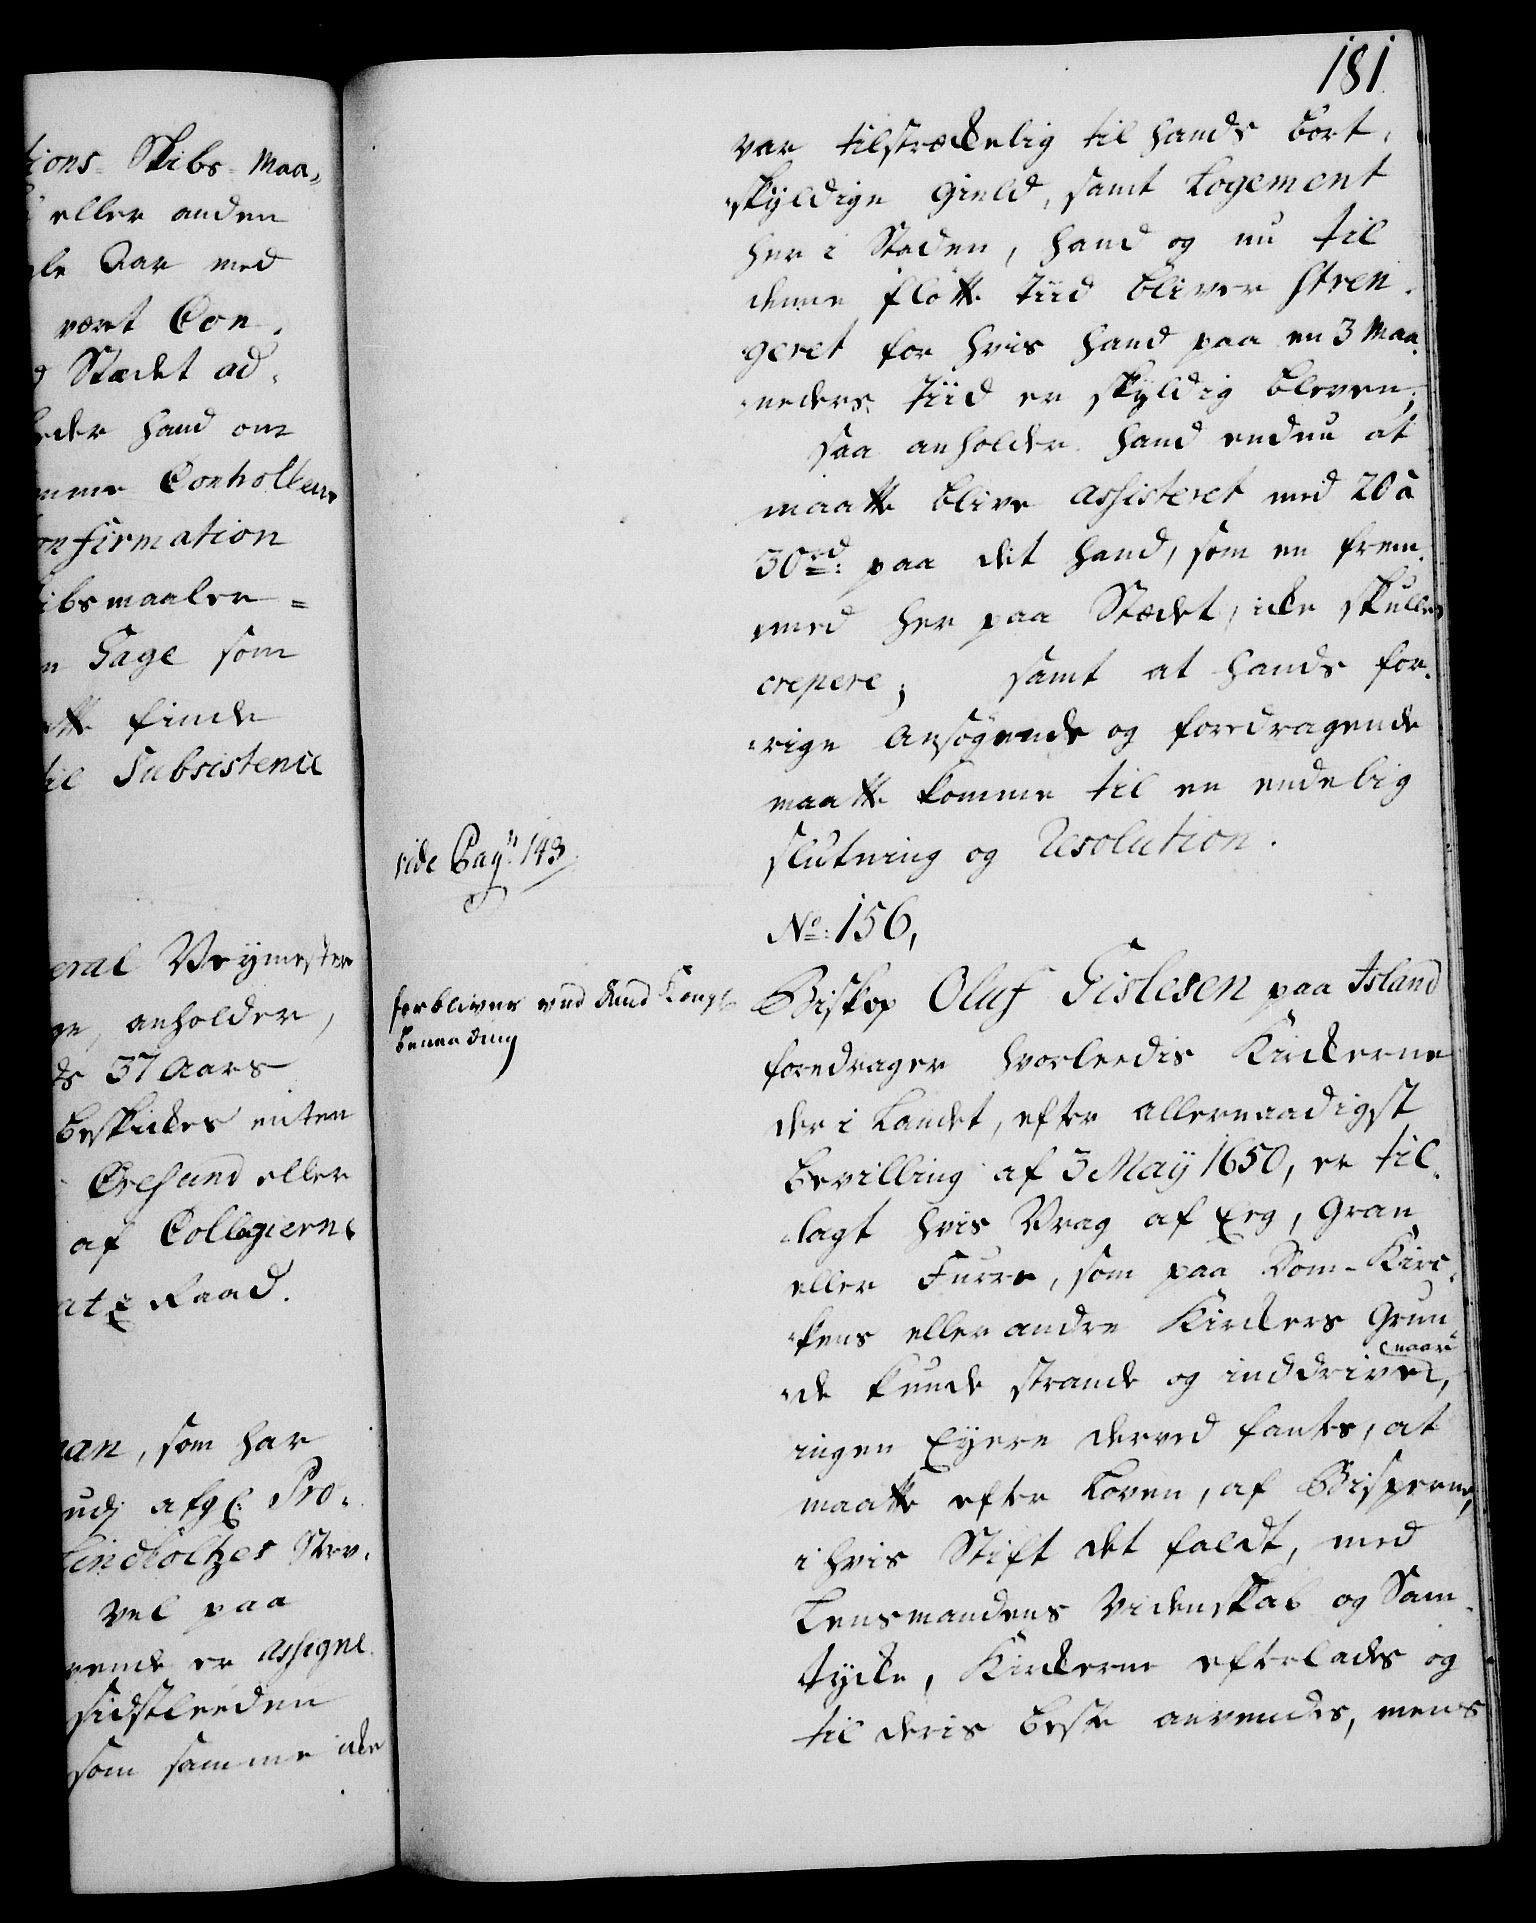 181.
tions-Skibs-Maa-
eller anden
le Aar med
vært Con-
Stædet ad-
hand om
Controlleur
onfirmation
ibsmaaler-
Gage som
finde
til Subsistence
eral Veymester
ge, anholder,
ds 37 Aars
beskickes enten
Øresund eller
af Collegierne
atz Raad.
an, som har
udj afg: Pro-
Lindholtzes Stev-
vel paa
er assigne-
sidstleeden
som samme icke
var tilstrækkelig til hands bort-
skyldige Gield, samt Logement
her i Staden, hand og nu til
denne flötte Tiid bliver stren-
geret for hvis hand paa en 3 Maa-
neders Tiid er skyldig bleven;
saa anholder hand endnu at
maatte blive assisteret med 20 à
30 rd: paa det hand, som en frem-
med her paa Stædet, icke skulle
crepere; samt at hands for-
rige Ansøgende og foredragende
maatte komme til en endelig
slutning og Resolution.
vide Pag: 143
No: 156,
forbliver ved dend Kongl:
benaading
Biskop Oluf Gislesen paa Island
foredrager hvorleedis Kirkerne
der i Landet, efter allernaadigst
bevilling af 3 Maÿ 1650, er til-
lagt hvis Vrag af Eeg, Gran
eller Furre, som paa Dom-Kirc-
kens eller andre Kirckers Grun-
de kunde strande og inddrives, naar
ingen Eyere derved fantes, at
maatte efter Loven, af Bisperne,
i hvis Stift det faldt, med
Lensmandens Videnskab og Sam-
tycke, Kirckerne efterlades og
til deris beste anvendes, mens